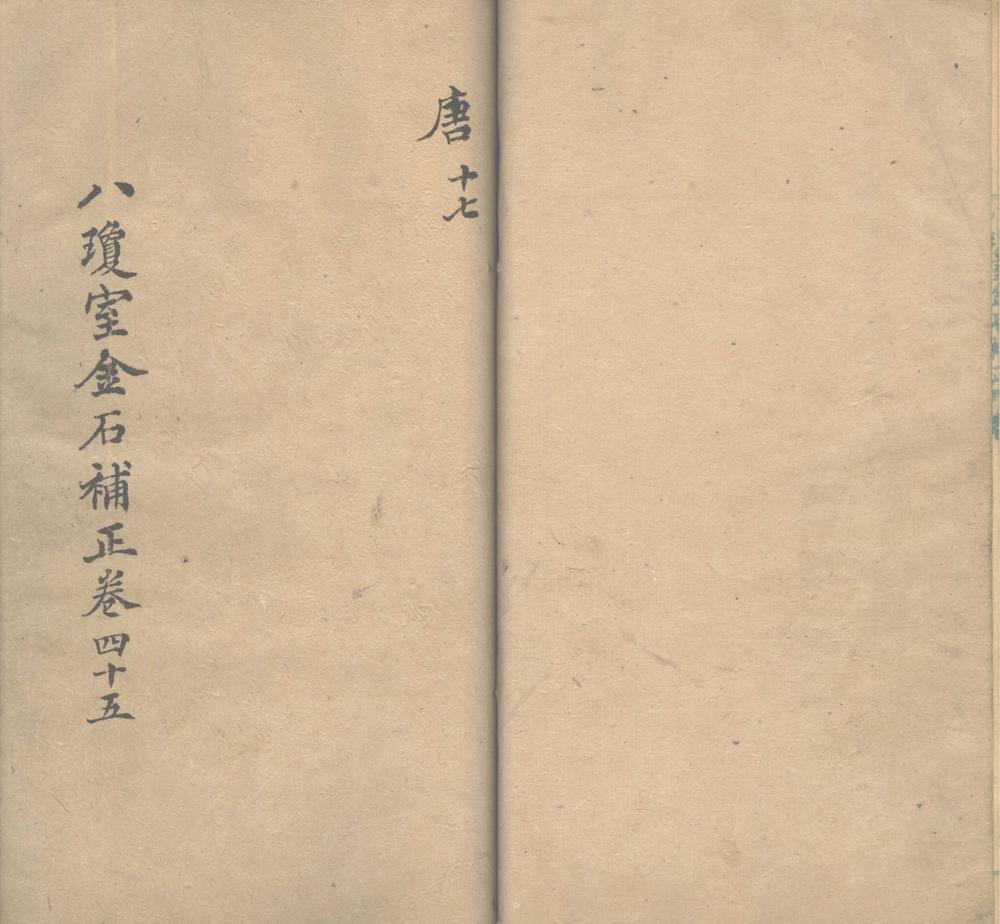 唐十七
八瓊室金石補正卷四十五